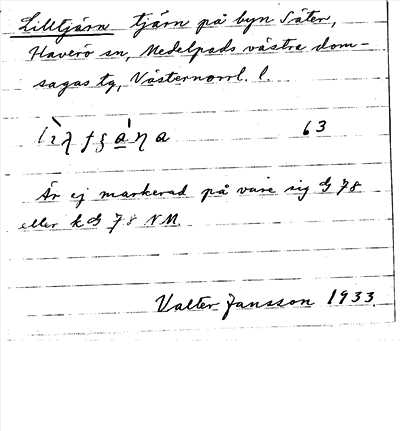 Lilltjärn tjärn på byn Säter,
Haverö sn, Medelpads västra dom-
sagas tg, Västernorrl. l.
63
Är ej markerad på vare sig G 78
eller k G 78 NM.
Valter Jansson 1933.